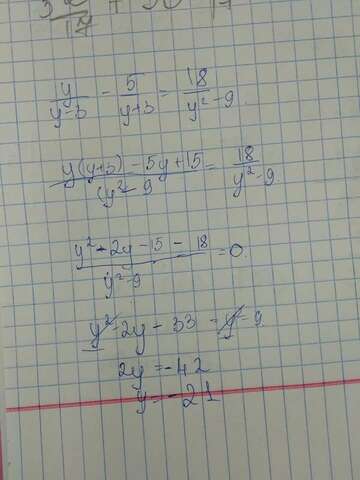 y/(y-3) - 5/(y+3) = 18/(y²-9)
(y(y+3) - 5y + 15)/(y²-9) = 18/(y²-9)
(y² - 2y - 15 - 18)/(y²-9) = 0
y² - 2y - 33 = y² - 9
2y = -42
y = -21